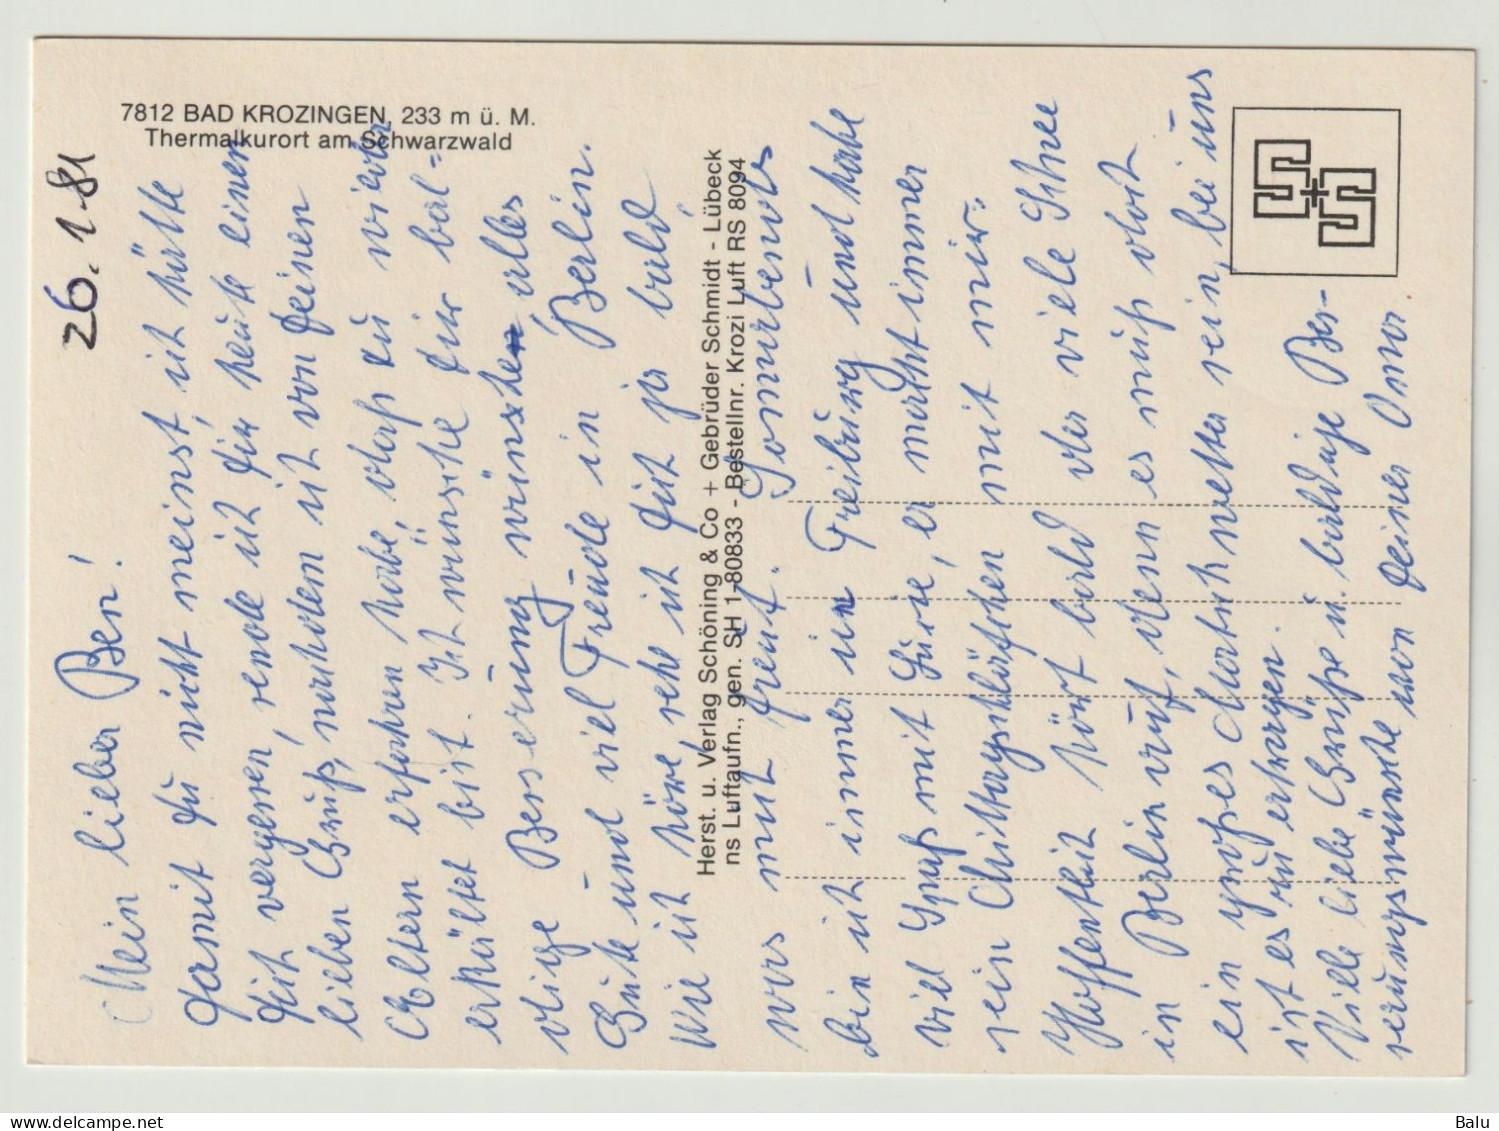 7812 BAD KROZINGEN, 233 m ü. M.
Thermalkurort am Schwarzwald
Herst. u. Verlag Schöning & Co + Gebrüder Schmidt - Lübeck
ns Luftaufn., gen. SH 1-80833 - Bestellnr. Krozi Luft RS 8094
S+S
26.1.81
Mein lieber Ben!
Damit Du nicht meinst, ich hätte
Dich vergessen, sende ich Dir heute einen
lieben Gruß, nachdem ich von Deinen
Eltern erfahren habe, daß Du wieder
erkältet bist. Ich wünsche Dir bal=
dige Besserung, wünsche alles
Gute und viel Freude in Berlin.
Wie ich höre, sehe ich Dich ja bald,
was mich freut. Sonnabends
bin ich immer in Freiburg und habe
viel Spaß mit, er macht immer
sein Mittagsschläfchen mit mir.
Hoffentlich hört bald der viele Schnee
in Berlin auf, denn es muß dort
ein großes Matschwetter sein, bei uns
ist es zu ertragen.
Viele liebe Grüße u. baldige Bes-
serungswünsche von Deiner Oma
Balu